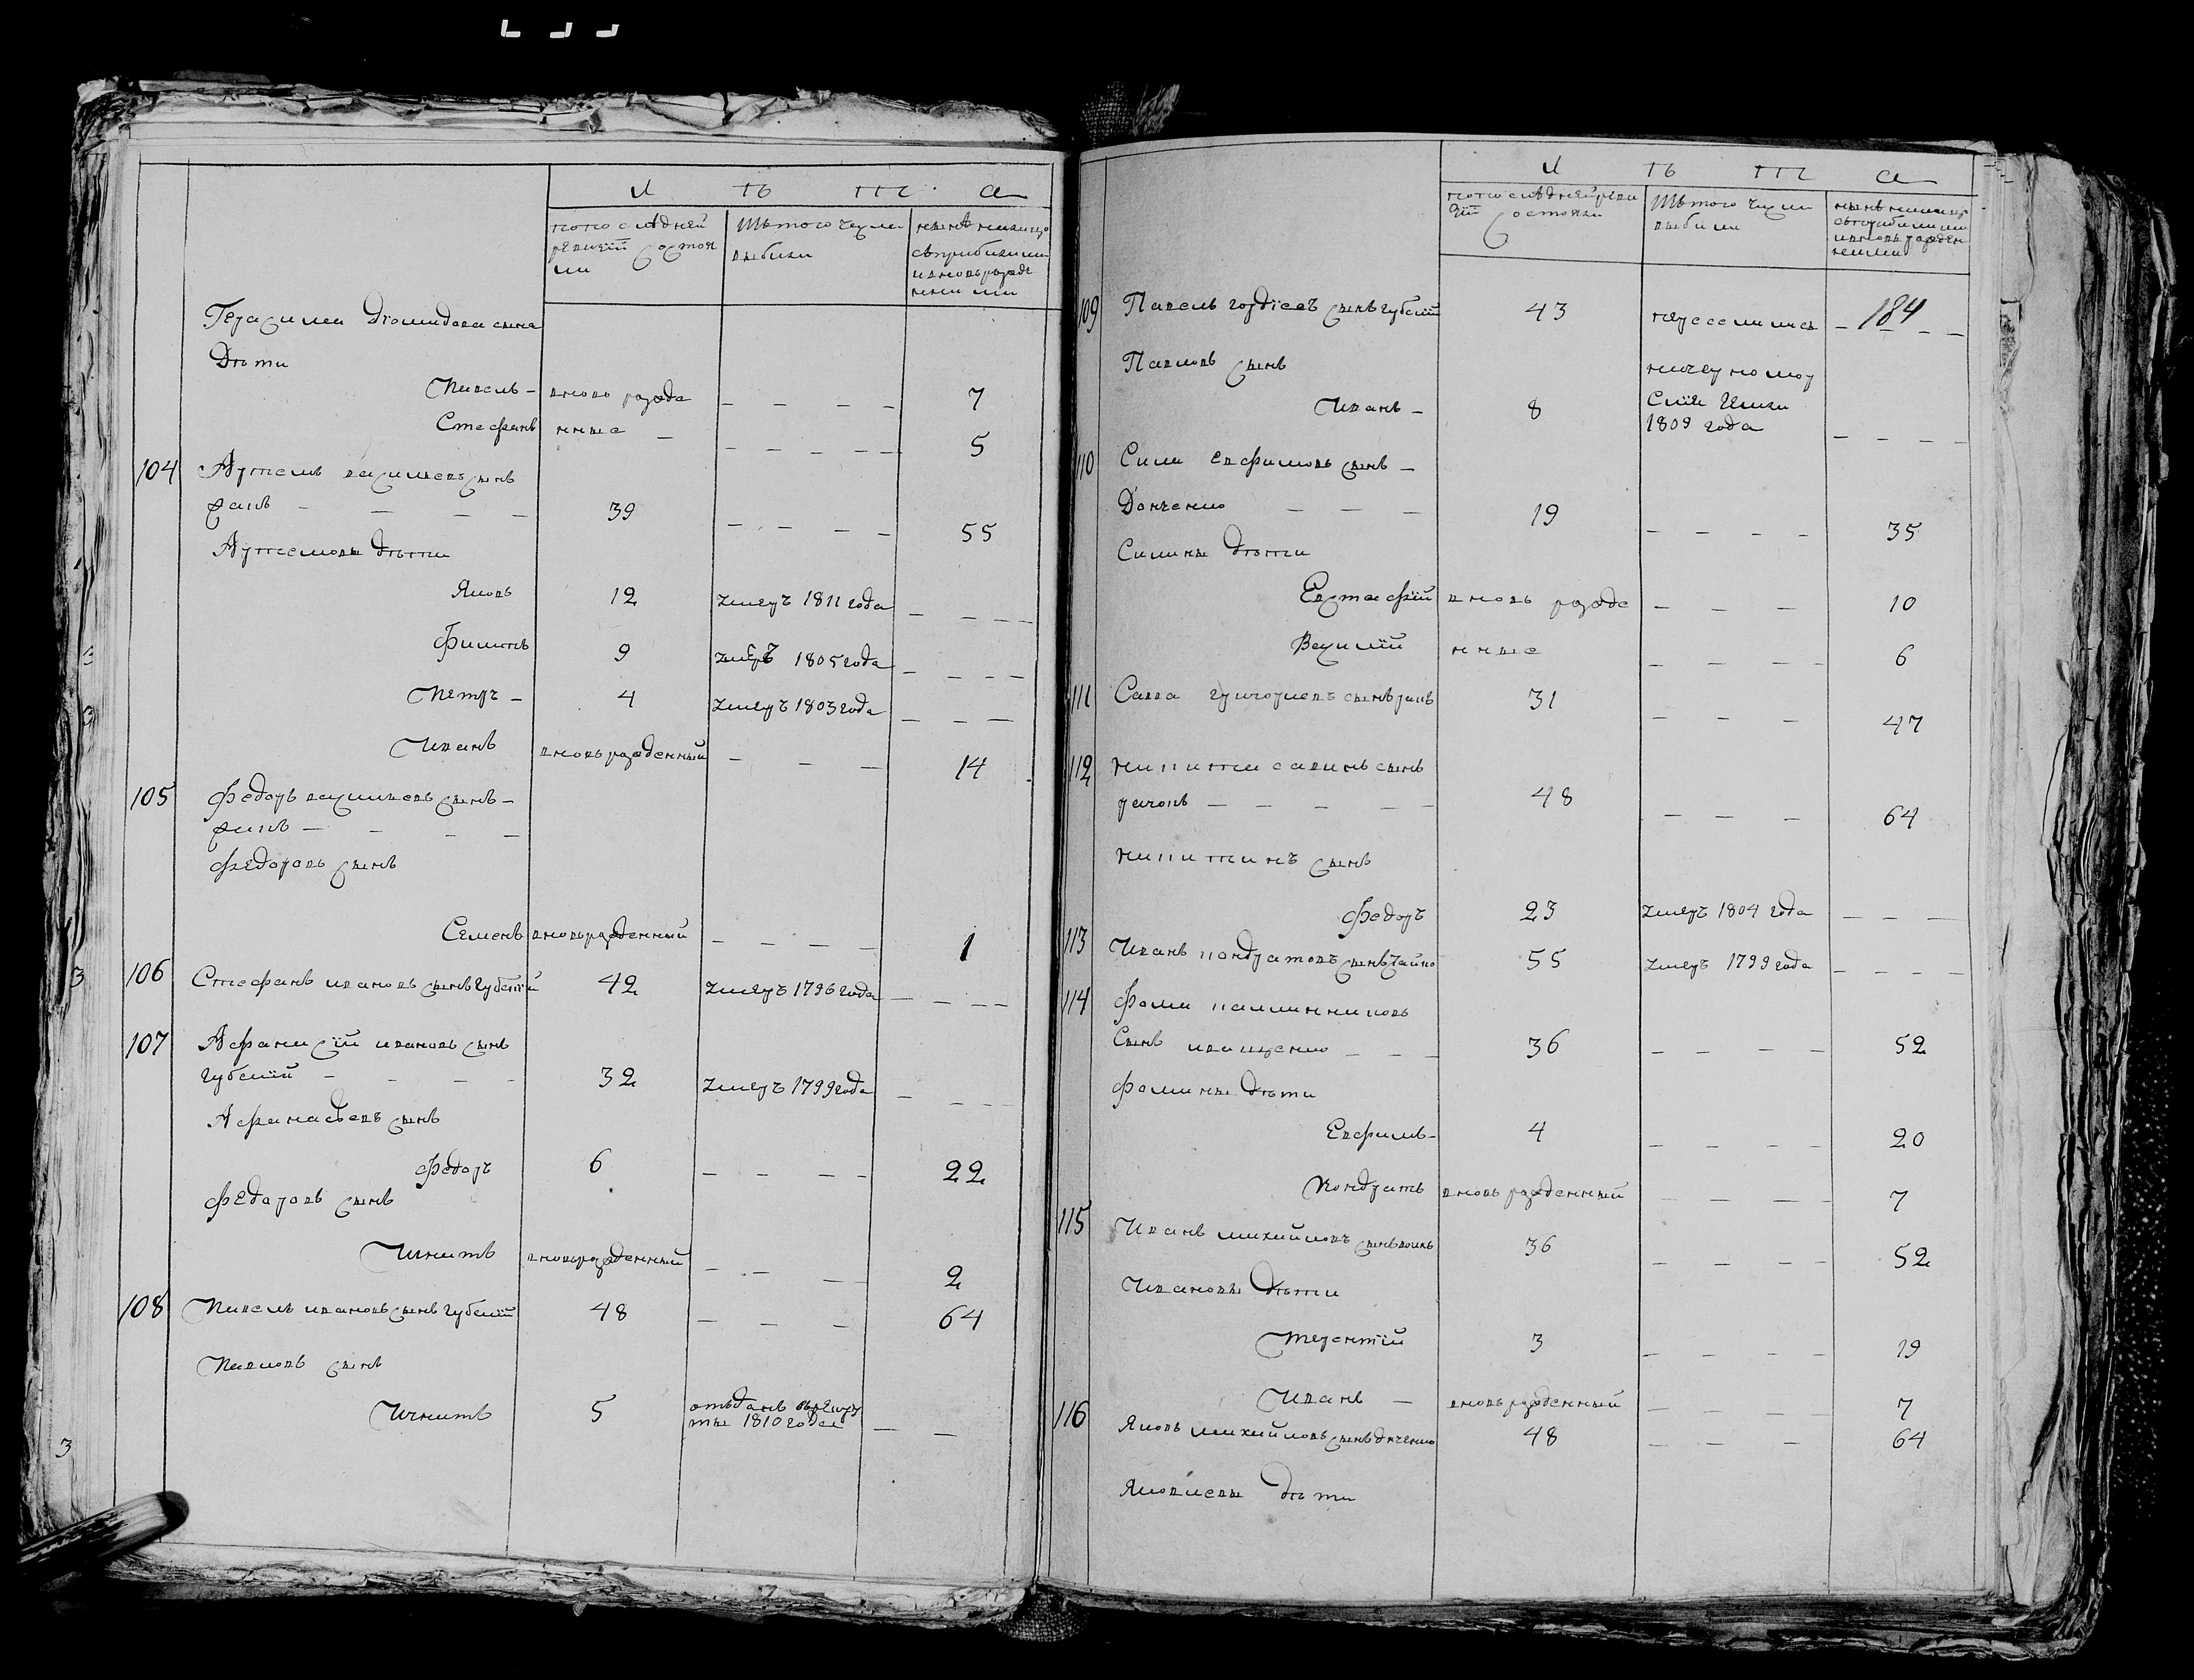 Л ѣ т а
по последней ревизіи состояли
Изъ того числа выбыли
ныне налицо съ прибылыми и вновь рожденными
Герасима Діомидова сына
Дѣти
Павелъ – вновь рожде – – – – 7
Стефанъ нные – – – – – – 5
104 Артемъ васильевъ сынъ
– – – – 39 – – – – 55
Артемовы дѣти
Яковъ 12 умеръ 1811 года – – – –
Филипъ 9 умеръ 1805 года – – – –
Петръ – 4 умеръ 1803 года – – –
Иванъ вновьрожденный – – – 14
105 Федоръ васильевъ сынъ –
– – – –
Федоровъ сынъ
Семенъ вновьрожденный – – – – 1
106 Стефанъ ивановъ сынъ губскій 42 умеръ 1796 года – – – –
107 Афанасій ивановъ сынъ
губскій – – – – 32 умеръ 1799 года – – – –
Афанасьевъ сынъ
Федоръ 6 – – – – 22
Федоровъ сынъ
Игнатъ вновьрожденный – – – – 2
108 Павелъ ивановъ сынъ губскій 48 – – – 64
Павловъ сынъ
Игнатъ 5 отъданъ въ рекру
ты 1810 года – –
Л ѣ т а
по последней ревизіи состояли
Изъ того числа выбыли
ныне налицо съ прибылыми и вновь рожденными
184
109 Павелъ гордіевъ сынъ губскій 43 переселился – – – –
Павловъ сынъ
Иванъ – 8
1809 года – – – –
110 Сила евфимовъ сынъ –
Донченко – – – 19 – – – – 35
Силины дѣти
Евстафій вновь рожде – – – 10
Василій нные – – – – 6
111 Савва григорьевъ сынъ 31 – – – 47
112 никита савинъ сынъ
– – – – – 48 – – – 64
никитинъ сынъ
Федоръ 23 умеръ 1804 года – – –
113 Иванъ кондратовъ сынъ 55 умеръ 1799 года – – – –
114 Фома
Сынъ иващенко – – – 36 – – – – 52
Фомины дѣти
Евфимъ – 4 – – – – 20
Кондратъ вновь рожденный – – – – 7
115 Иванъ михайловъ сынъ 36 – – – – 52
Ивановы дѣти
Терентій 3 – – – – 19
Иванъ – вновь рожденный – – – – 7
116 Яковъ михайловъ сынъ 48 – – – 64
Яковлевы дѣти